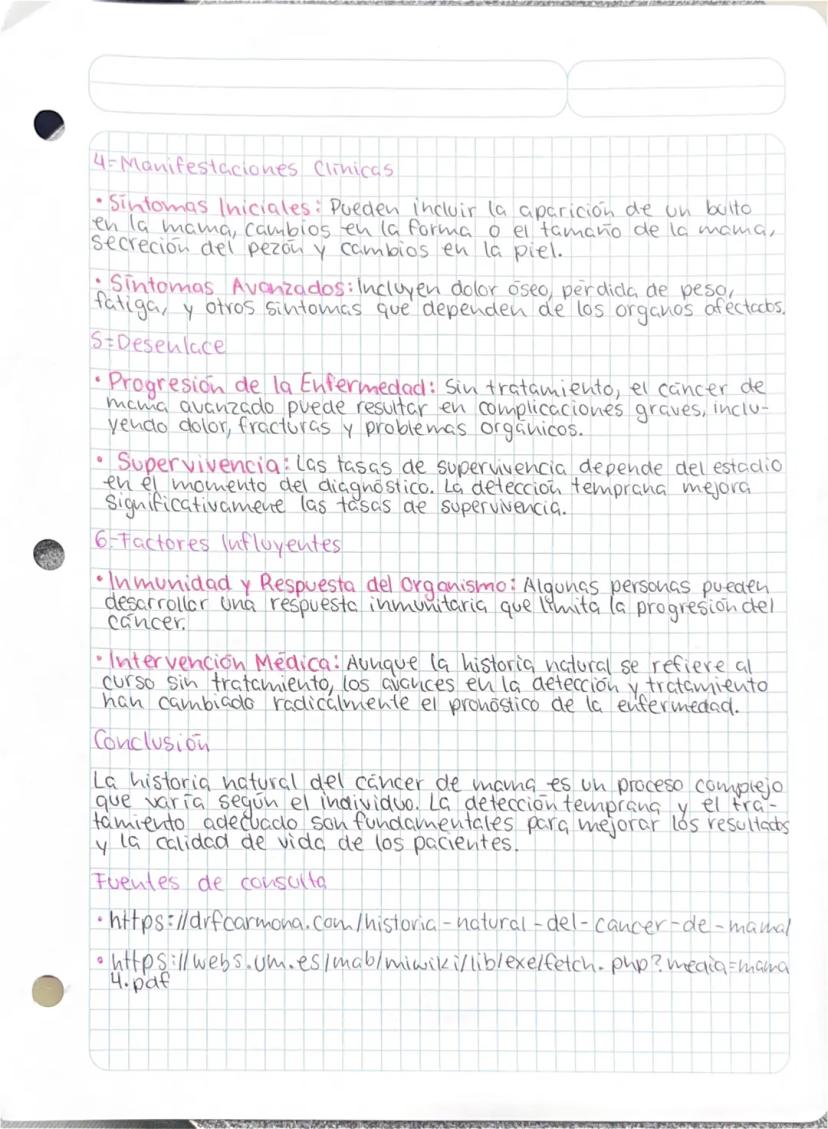 4=Manifestaciones Clínicas
• Síntomas Iniciales: Pueden incluir la aparición de un bulto
en la mama, cambios en la forma o el tamaño de la mama,
secreción del pezón y cambios en la piel.
• Síntomas Avanzados: Incluyen dolor óseo, pérdida de peso,
fatiga, y otros síntomas que dependen de los organos afectados.
5=Desenlace
• Progresión de la Enfermedad: Sin tratamiento, el cáncer de
mama avanzado puede resultar en complicaciones graves, inclu-
yendo dolor, fracturas y problemas orgánicos.
• Supervivencia: Las tasas de supervivencia depende del estadio
en el momento del diagnóstico. La detección temprana mejora
significativamene las tasas de supervivencia.
6-Factores Influyentes
• Inmunidad y Respuesta del Organismo: Algunas personas pueden
desarrollar una respuesta inmunitaria que limita la progresión del
cáncer.
• Intervención Médica: Aunque la historia natural se refiere al
curso sin tratamiento, los avances en la detección y tratamiento
han cambiado radicalmente el pronóstico de la enfermedad.
Conclusión
La historia natural del cáncer de mama es un proceso complejo
que varía según el individuo. La detección temprana y el tra-
tamiento adecuado son fundamentales para mejorar los resultados
y la calidad de vida de los pacientes.
Fuentes de consulta
• https://drfcarmona.com/historia-natural-del-cancer-de-mama/
• https://webs.um.es/mab/miwiki/lib/exe/fetch.php?media=mama
4.pdf